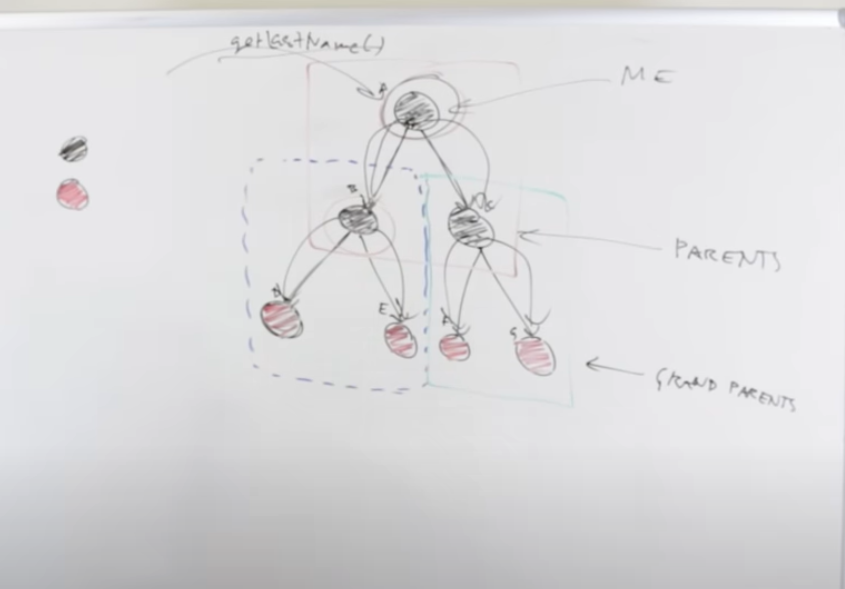 getLastName()
A
ME
B
PARENTS
E
G
GRAND PARENTS